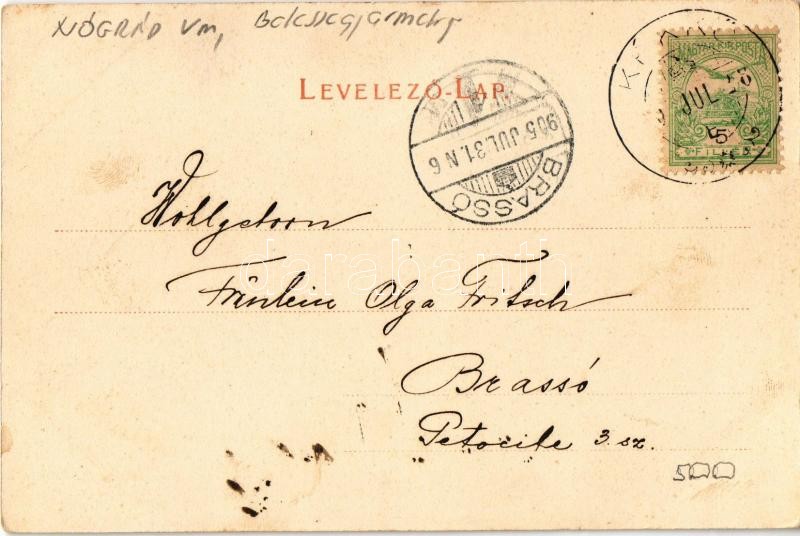 NÓGRÁD Vm, Balassagyarmat
LEVELEZŐ-LAP.
MAGYAR KIR. POSTA
JUL
5
FILLÉR
905 JUL. 31. N 6
BRASSÓ
Wohlgeborn
darabanth
Fräulein Olga Fritsch
Brassó
3 sz.
500